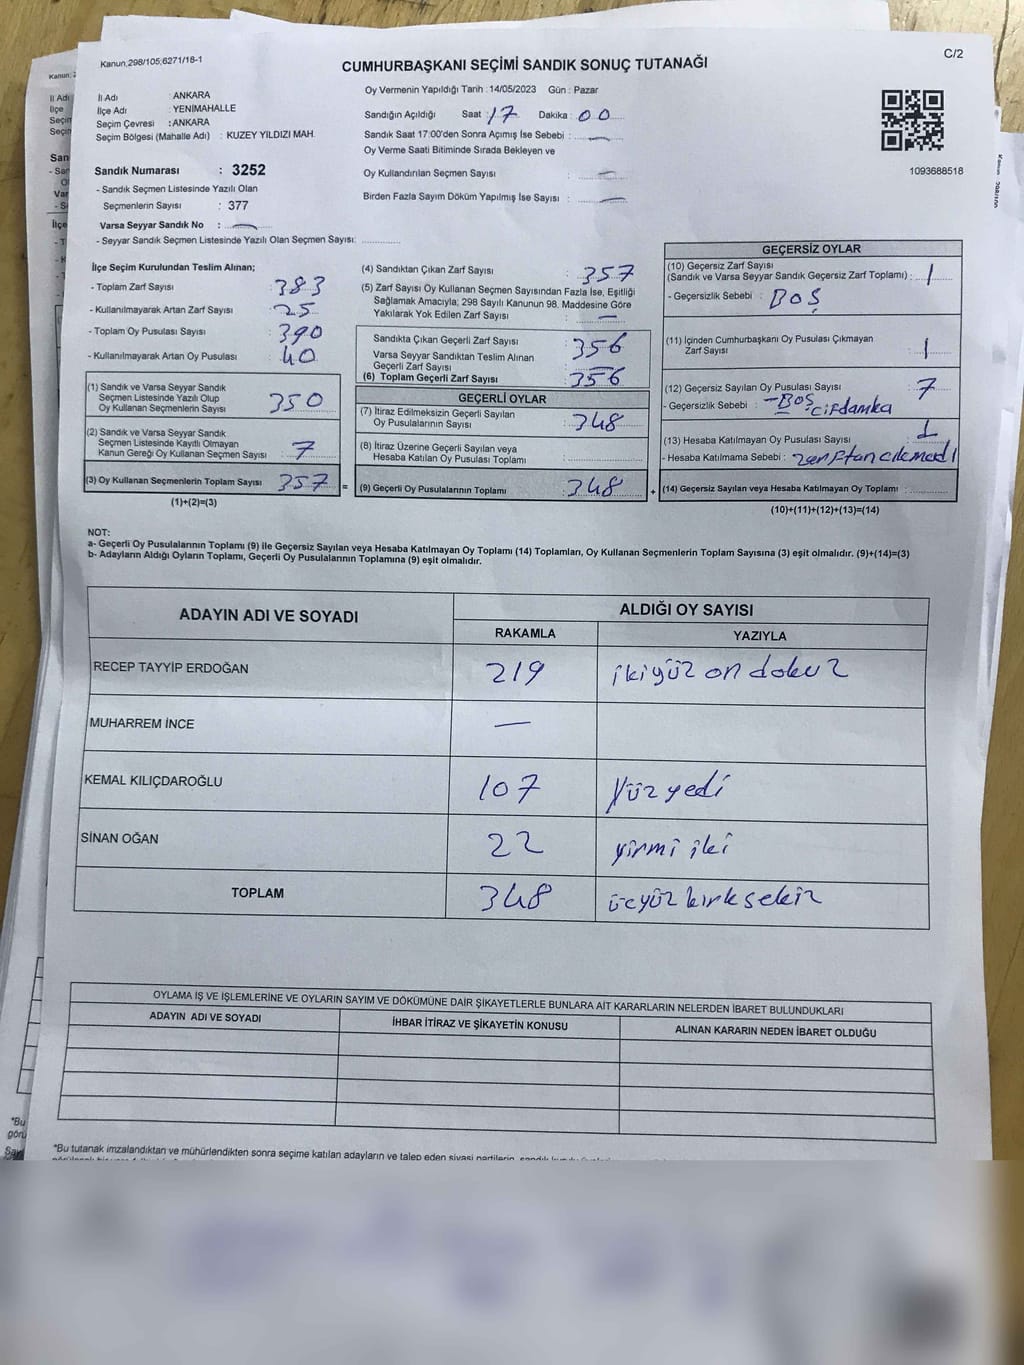 Kanun;298/105;6271/18-1
CUMHURBAŞKANI SEÇİMİ SANDIK SONUÇ TUTANAĞI
C/2
İl Adı : ANKARA
İlçe Adı : YENİMAHALLE
Seçim Çevresi : ANKARA
Seçim Bölgesi (Mahalle Adı) : KUZEY YILDIZI MAH.
Sandık Numarası : 3252
- Sandık Seçmen Listesinde Yazılı Olan
Seçmenlerin Sayısı : 377
Varsa Seyyar Sandık No : —
- Seyyar Sandık Seçmen Listesinde Yazılı Olan Seçmen Sayısı:
Oy Vermenin Yapıldığı Tarih : 14/05/2023 Gün : Pazar
Sandığın Açıldığı Saat : 17 Dakika : 00
Sandık Saat 17:00'den Sonra Açımış İse Sebebi : —
Oy Verme Saati Bitiminde Sırada Bekleyen ve
Oy Kullandırılan Seçmen Sayısı : —
Birden Fazla Sayım Döküm Yapılmış İse Sayısı : —
1093688518
İlçe Seçim Kurulundan Teslim Alınan;
- Toplam Zarf Sayısı : 383
- Kullanılmayarak Artan Zarf Sayısı : 25
- Toplam Oy Pusulası Sayısı : 390
- Kullanılmayarak Artan Oy Pusulası : 40
(1) Sandık ve Varsa Seyyar Sandık
Seçmen Listesinde Yazılı Olup
Oy Kullanan Seçmenlerin Sayısı : 350
(2) Sandık ve Varsa Seyyar Sandık
Seçmen Listesinde Kayıtlı Olmayan
Kanun Gereği Oy Kullanan Seçmen Sayısı : 7
(3) Oy Kullanan Seçmenlerin Toplam Sayısı : 357 =
(1)+(2)=(3)
(4) Sandıktan Çıkan Zarf Sayısı : 357
(5) Zarf Sayısı Oy Kullanan Seçmen Sayısından Fazla İse, Eşitliği
Sağlamak Amacıyla; 298 Sayılı Kanunun 98. Maddesine Göre
Yakılarak Yok Edilen Zarf Sayısı : —
Sandıkta Çıkan Geçerli Zarf Sayısı : 356
Varsa Seyyar Sandıktan Teslim Alınan
Geçerli Zarf Sayısı : —
(6) Toplam Geçerli Zarf Sayısı : 356
GEÇERLİ OYLAR
(7) İtiraz Edilmeksizin Geçerli Sayılan
Oy Pusulalarının Sayısı : 348
(8) İtiraz Üzerine Geçerli Sayılan veya
Hesaba Katılan Oy Pusulası Toplamı :
(9) Geçerli Oy Pusulalarının Toplamı : 348 +
GEÇERSİZ OYLAR
(10) Geçersiz Zarf Sayısı
(Sandık ve Varsa Seyyar Sandık Geçersiz Zarf Toplamı) : 1
- Geçersizlik Sebebi : BOŞ
(11) İçinden Cumhurbaşkanı Oy Pusulası Çıkmayan
Zarf Sayısı : 1
(12) Geçersiz Sayılan Oy Pusulası Sayısı : 7
- Geçersizlik Sebebi : -BOŞ çifdamka
(13) Hesaba Katılmayan Oy Pusulası Sayısı : 1
- Hesaba Katılmama Sebebi : zarftancıkmadı
(14) Geçersiz Sayılan veya Hesaba Katılmayan Oy Toplamı :
(10)+(11)+(12)+(13)=(14)
NOT:
a- Geçerli Oy Pusulalarının Toplamı (9) ile Geçersiz Sayılan veya Hesaba Katılmayan Oy Toplamı (14) Toplamları, Oy Kullanan Seçmenlerin Toplam Sayısına (3) eşit olmalıdır. (9)+(14)=(3)
b- Adayların Aldığı Oyların Toplamı, Geçerli Oy Pusulalarının Toplamına (9) eşit olmalıdır.
ADAYIN ADI VE SOYADI
ALDIĞI OY SAYISI
RAKAMLA YAZIYLA
RECEP TAYYİP ERDOĞAN 219 ikiyüz on dokuz
MUHARREM İNCE —
KEMAL KILIÇDAROĞLU 107 Yüz yedi
SİNAN OĞAN 22 yirmi iki
TOPLAM 348 üçyüz kırk sekiz
OYLAMA İŞ VE İŞLEMLERİNE VE OYLARIN SAYIM VE DÖKÜMÜNE DAİR ŞİKAYETLERLE BUNLARA AİT KARARLARIN NELERDEN İBARET BULUNDUKLARI
ADAYIN ADI VE SOYADI İHBAR İTİRAZ VE ŞİKAYETİN KONUSU ALINAN KARARIN NEDEN İBARET OLDUĞU
*Bu tutanak imzalandıktan ve mühürlendikten sonra seçime katılan adayların ve talep eden siyasi partilerin,